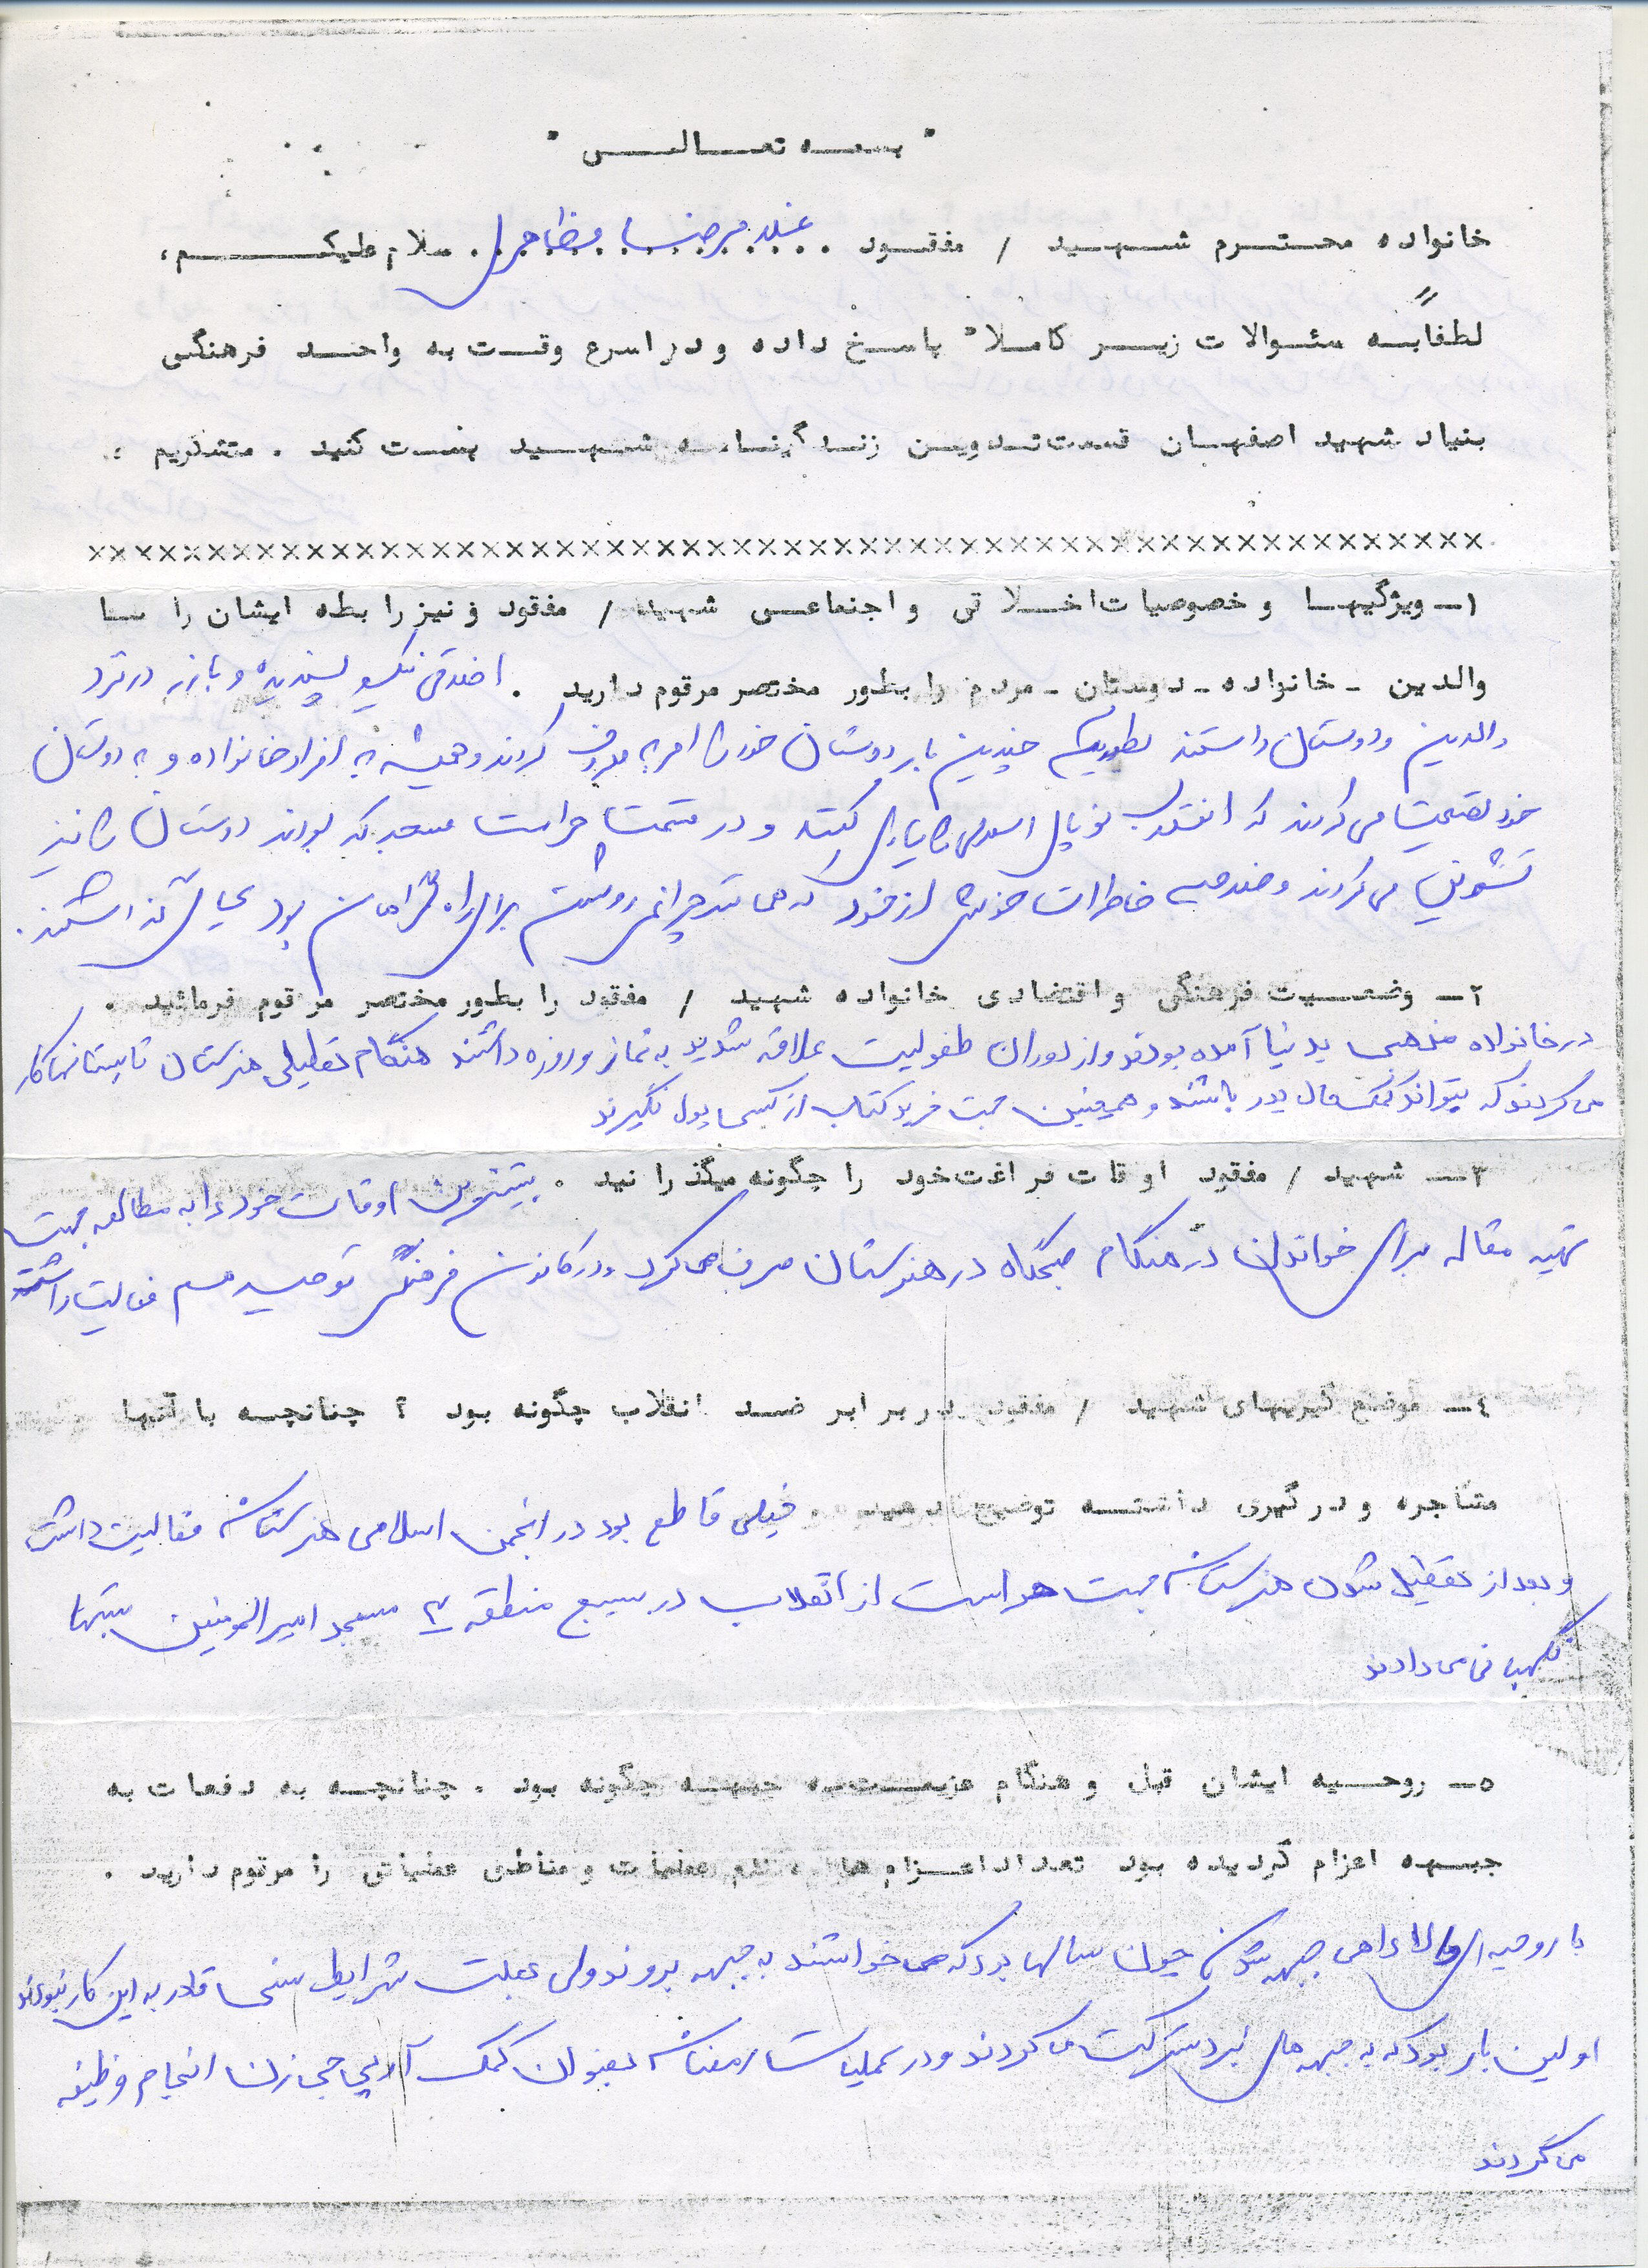 "بسمه تعالی"
خانواده محترم شهید / مفقود . غلامرضا مظاهری . سلام علیکم،
لطفاً به سئوالات زیر کاملا" پاسخ داده و در اسرع وقت به واحد فرهنگی
بنیاد شهید اصفهان قسمت تدوین زندگینامه شهید پست کنید . متشکریم .
××××××××××××××××××××××××××××××××××××××××××××××××××××××××
۱- ویژگیها و خصوصیات اخلاقی و اجتماعی شهید / مفقود و نیز رابطه ایشان را با
والدین - خانواده - دوستان - مردم را بطور مختصر مرقوم دارید . اخلاقی نیکو پسندیده و بارز در نزد
والدین و دوستان داشتند بطوریکه چندین بار دوستان خود را امر به معروف کردند و همیشه به افراد خانواده و به دوستان
خود نصیحت می کردند که انقلاب نوپای اسلامی را یاری کنند و در قسمت حراست مسجد که بودند دوستان را نیز
تشویق می کردند و خلاصه خاطرات خوشی از خود که همانند چراغی روشن برای راه گمراهان بود بجای گذاشتند .
۲- وضعیت فرهنگی و اقتصادی خانواده شهید / مفقود را بطور مختصر مرقوم فرمائید .
در خانواده مذهبی بدنیا آمده بودند و از دوران طفولیت علاقه شدید به نماز و روزه داشتند هنگام تعطیلی هنرستان تابستانها کار
می کردند که بتوانند کمک حال پدر باشند و همچنین جهت خرید کتاب از کسی پول نگیرند
۳- شهید / مفقود اوقات فراغت خود را چگونه میگذرانید . بیشترین اوقات خود را به مطالعه جهت
تهیه مقاله برای خواندن در هنگام صبحگاه در هنرستان صرف می کرد و در کانون فرهنگی توحید هم فعالیت داشتند
٤- موضع گیریهای شهید / مفقود در برابر ضد انقلاب چگونه بود ؟ چنانچه با آنها
مشاجره و درگیری داشته توضیح دهید . خیلی قاطع بود در انجمن اسلامی هنرستان فعالیت داشت
و بعد از تعطیل شدن هنرستان جهت حراست از انقلاب در بسیج منطقه ۳ مسجد امیرالمومنین شبها
نگهبانی می دادند
٥- روحیه ایشان قبل و هنگام عزیمت به جبهه چگونه بود . چنانچه به دفعات به
جبهه اعزام گردیده بود تعداد اعزام ها، نام عملیات و مناطق عملیاتی را مرقوم دارید .
با روحیه ای والا راهی جبهه شدند چون سالها بود که می خواستند به جبهه بروند ولی بعلت شرایط سنی قادر به این کار نبودند
اولین بار بود که به جبهه های نبرد شرکت می کردند و در عملیات رمضان بعنوان کمک آرپی جی زن انجام وظیفه
می کردند